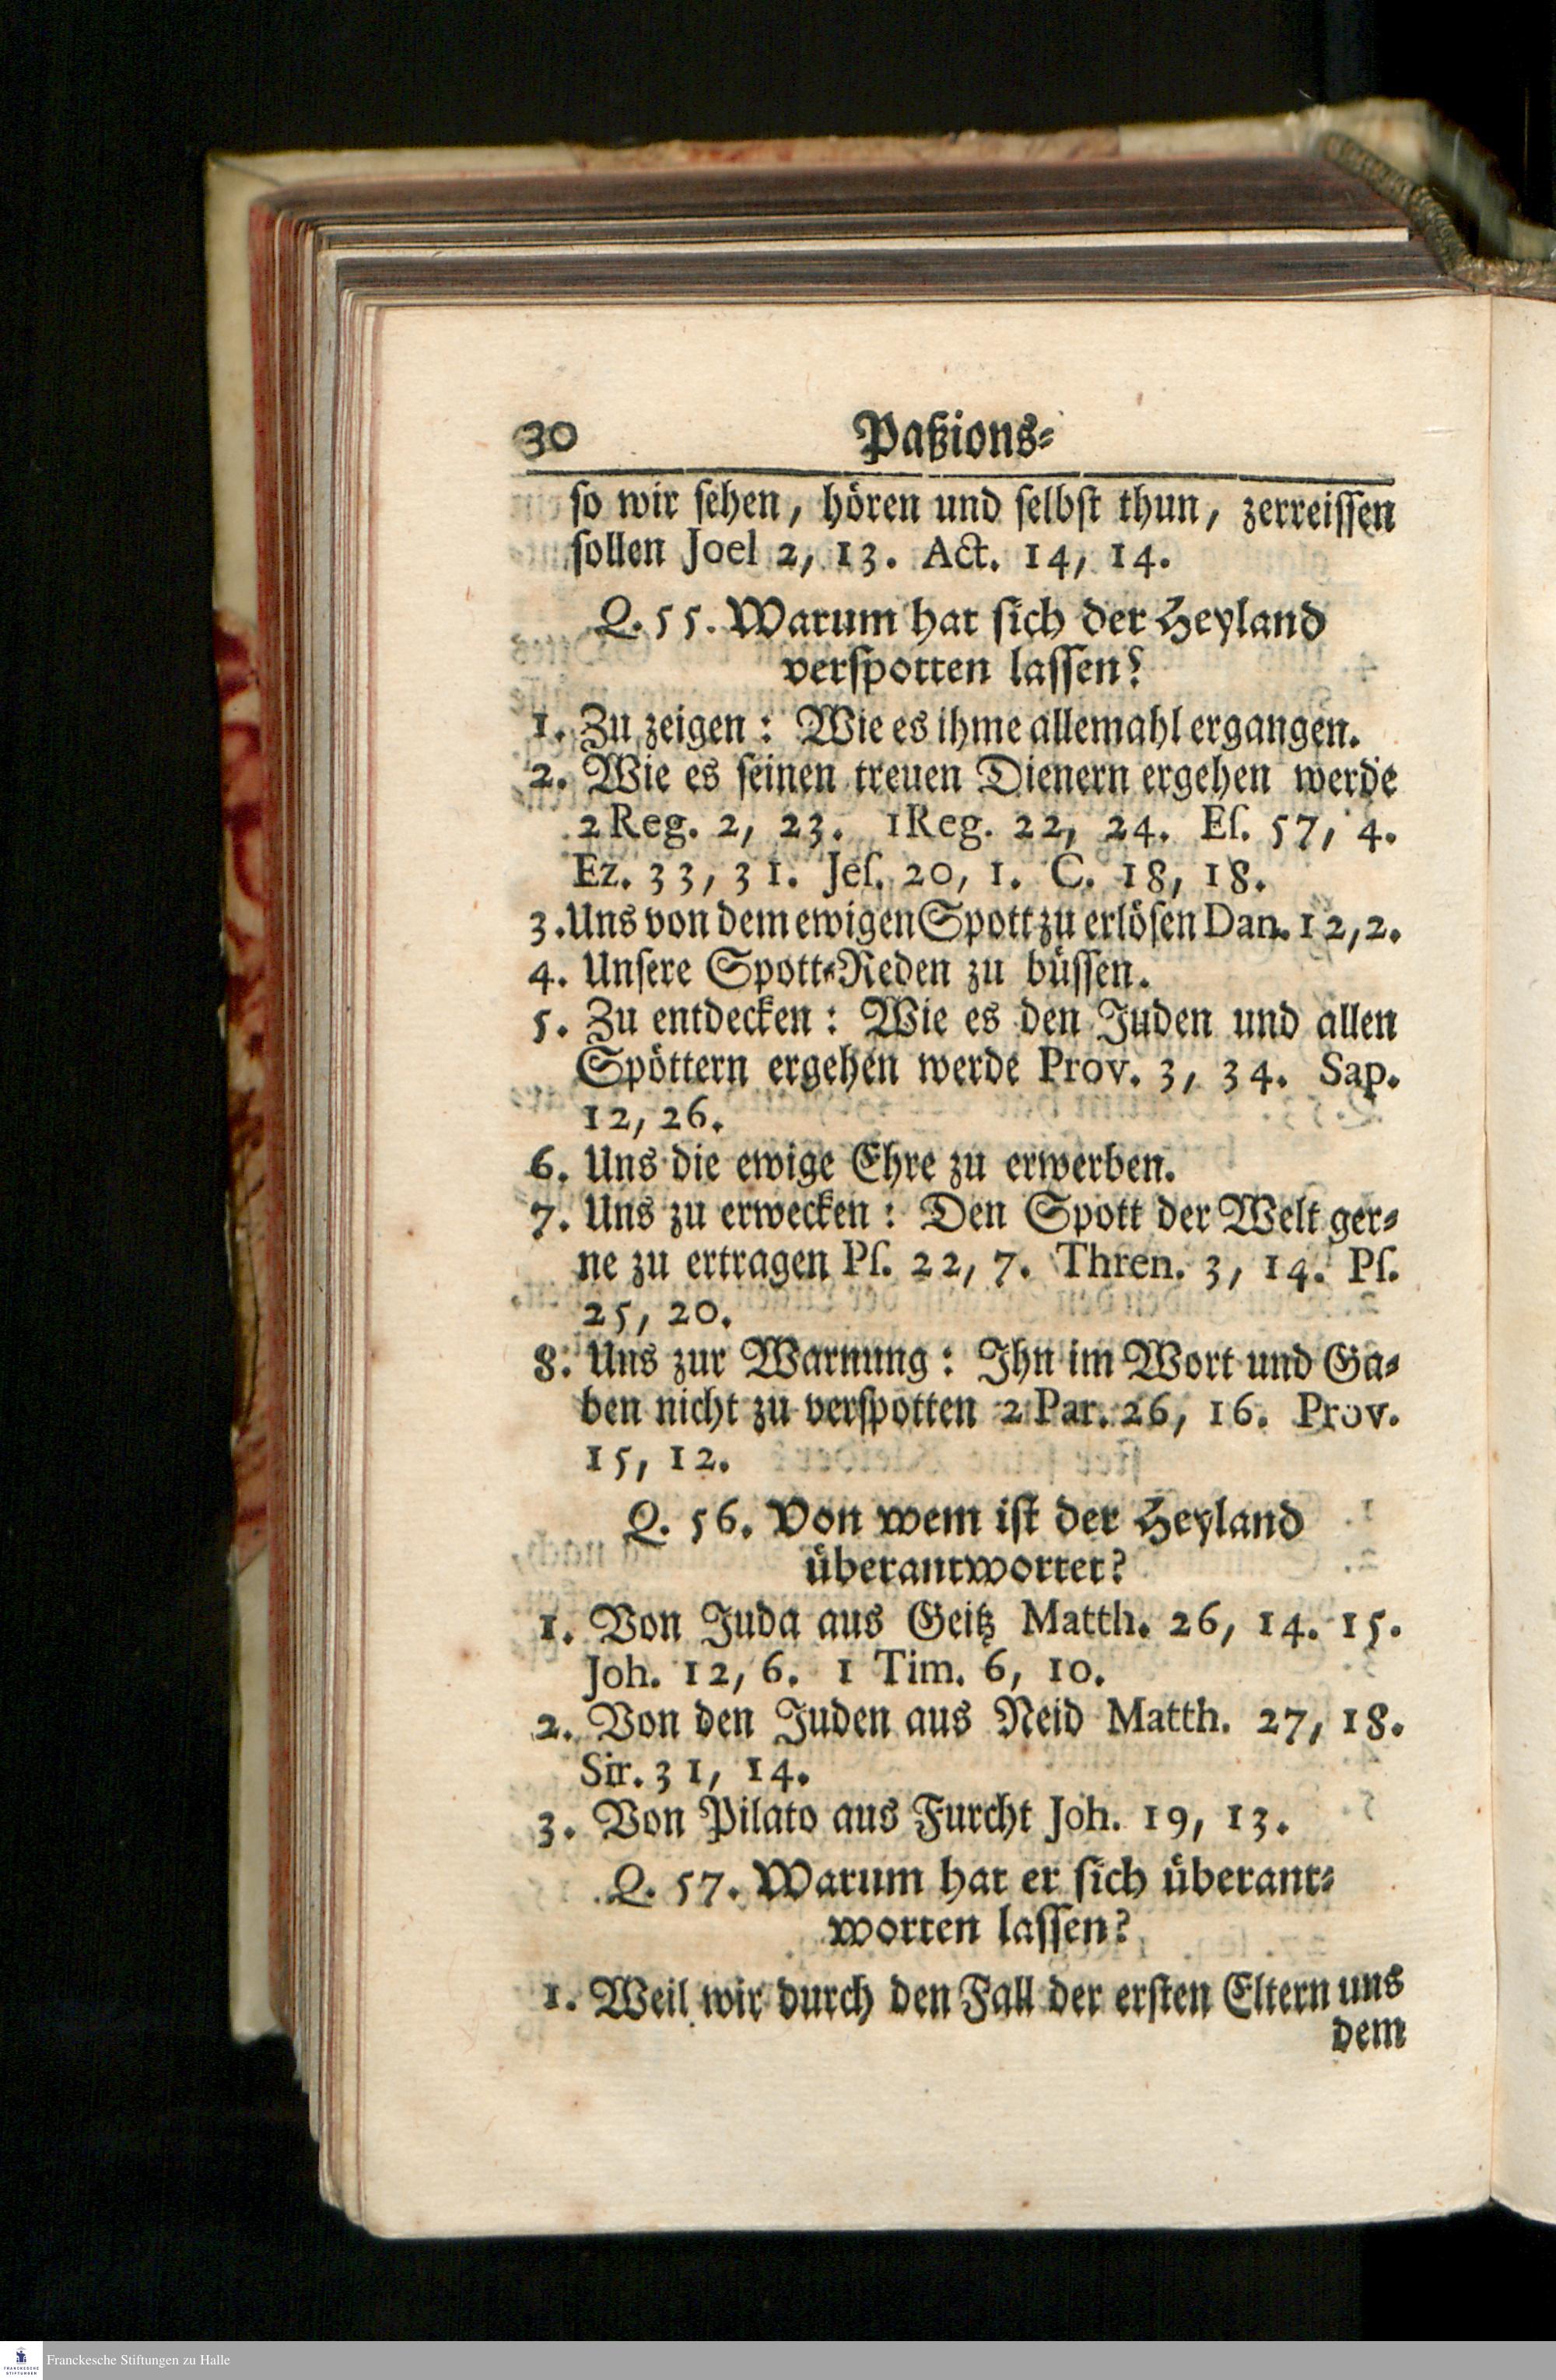 30 Paßions-
so wir sehen, hören und selbst thun, zerreissen
sollen Joel 2, 13. Act. 14, 14.
Q. 55. Warum hat sich der Heyland
verspotten lassen?
1. Zu zeigen: Wie es ihme allemahl ergangen.
2. Wie es seinen treuen Dienern ergehen werde
2 Reg. 2, 23. 1 Reg. 22, 24. Es. 57, 4.
Ez. 33, 31. Jes. 20, 1. C. 18, 18.
3. Uns von dem ewigen Spott zu erlösen Dan. 12, 2.
4. Unsere Spott-Reden zu büssen.
5. Zu entdecken: Wie es den Juden und allen
Spöttern ergehen werde Prov. 3, 34. Sap.
12, 26.
6. Uns die ewige Ehre zu erwerben.
7. Uns zu erwecken: Den Spott der Welt ger-
ne zu ertragen Ps. 22, 7. Thren. 3, 14. Ps.
25, 20.
8. Uns zur Warnung: Ihn im Wort und Ga-
ben nicht zu verspotten 2 Par. 26, 16. Prov.
15, 12.
Q. 56. Von wem ist der Heyland
überantwortet?
1. Von Juda aus Geitz Matth. 26, 14. 15.
Joh. 12, 6. 1 Tim. 6, 10.
2. Von den Juden aus Neid Matth. 27, 18.
Sir. 31, 14.
3. Von Pilato aus Furcht Joh. 19, 13.
Q. 57. Warum hat er sich überant-
worten lassen?
1. Weil wir durch den Fall der ersten Eltern uns
dem
Franckesche Stiftungen zu Halle
FRANCKESCHE
STIFTUNGEN